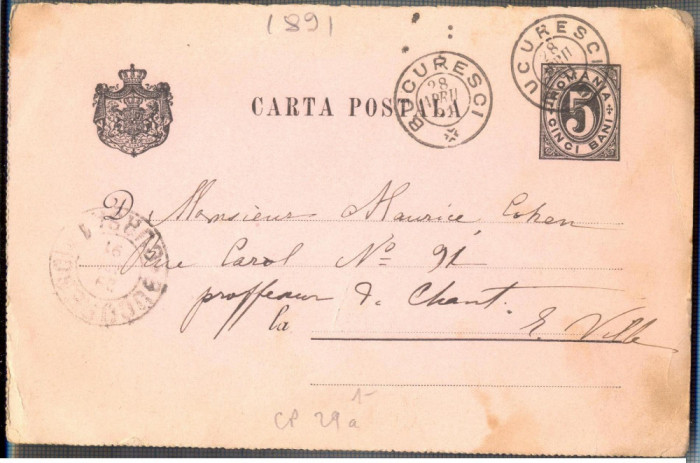 1891
BUCURESCI
28
APRIL
BUCURESCI
28
APRIL
ROMANIA
5
CINCI BANI
CARTA POSTALA
D. Monsieur Maurice Cohen
Rue Carol No 91
proffeseur de Chant.
la E. Ville
BUCURESCI
91
CP 29a
1-